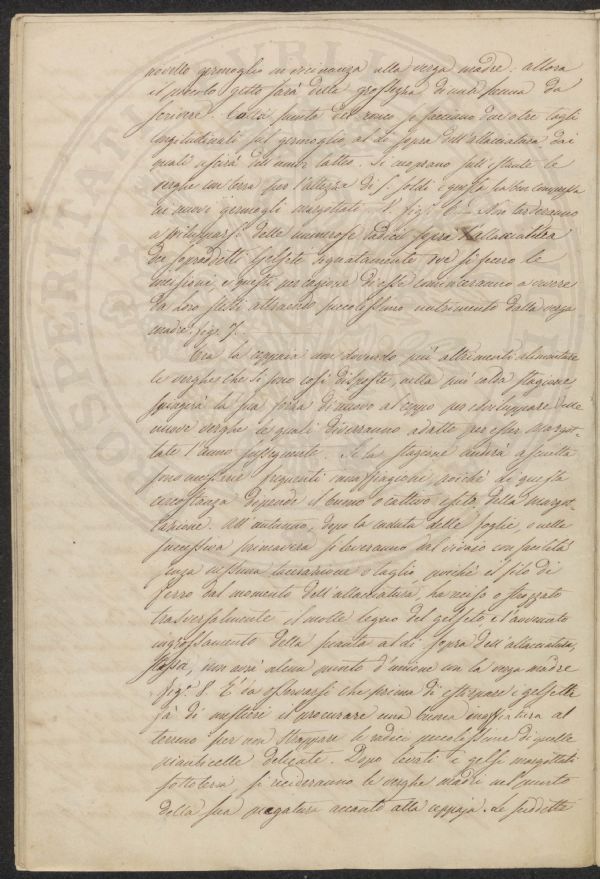 novello germoglio in vicinanza alla verga madre: allora
il piccolo gesto sarà della grossezza di una penna da
scrivere. Colla punta del ronco si facciano due o tre tagli
longitudinali sul germoglio al di sopra dell'allacciatura dai
quali uscirà dell'umor latteo. Si cuoprano sull'istante le
verghe con terra per l'altezza di 5. soldi e questa ha ben compressa
ai nuovi germogli margottati V. fig.ª 6. — Non tarderanno
a svilupparsi delle numerose radici sopra l'allacciatura
dei sopradetti Gelseti segnatamente ove si fecero le
incisioni, e questi per cagione di esse cominceranno a vivere
da loro stessi attraendo piccolissimo nutrimento dalla verga
madre. fig. 7. —
Ora la ceppaia non dovendo più altrimenti alimentare
le verghe che si sono così disposte, nella più calda stagione
spingerà la sua forza di nuovo al capo per sviluppare delle
nuove verghe le quali diverranno adatte per esser margot-
tate l'anno susseguente. Se la stagione andrà asciutta
sono mestiere frequenti innaffiagioni, poichè di questa
circostanza dipende il buono o cattivo esito della margot-
tazione. All'autunno, dopo la caduta delle foglie, o nella
successiva primavera si leveranno dal vivaio con facilità
senza nessuna lacerazione o taglio poichè il filo di
ferro dal momento dell'allacciatura, ha roso o strozzato
trasversalmente il molle legno del gelseto, e l'avvenuto
ingrossamento della pianta al di sopra dell'allacciatura,
stessa, non avrà alcun punto d'unione con la verga madre
fig.ª 8. E' da osservarsi che prima di estirpare i gelsetti
fà di mestieri il procurare una buona inaffiatura al
terreno per non strappare le radici piccolissime di quelle
pianticelle delicate. Dopo levati i gelsi margottati
sottoterra, si recideranno le verghe madri nel punto
della sua piegatura accanto alla ceppaja. Le suddette